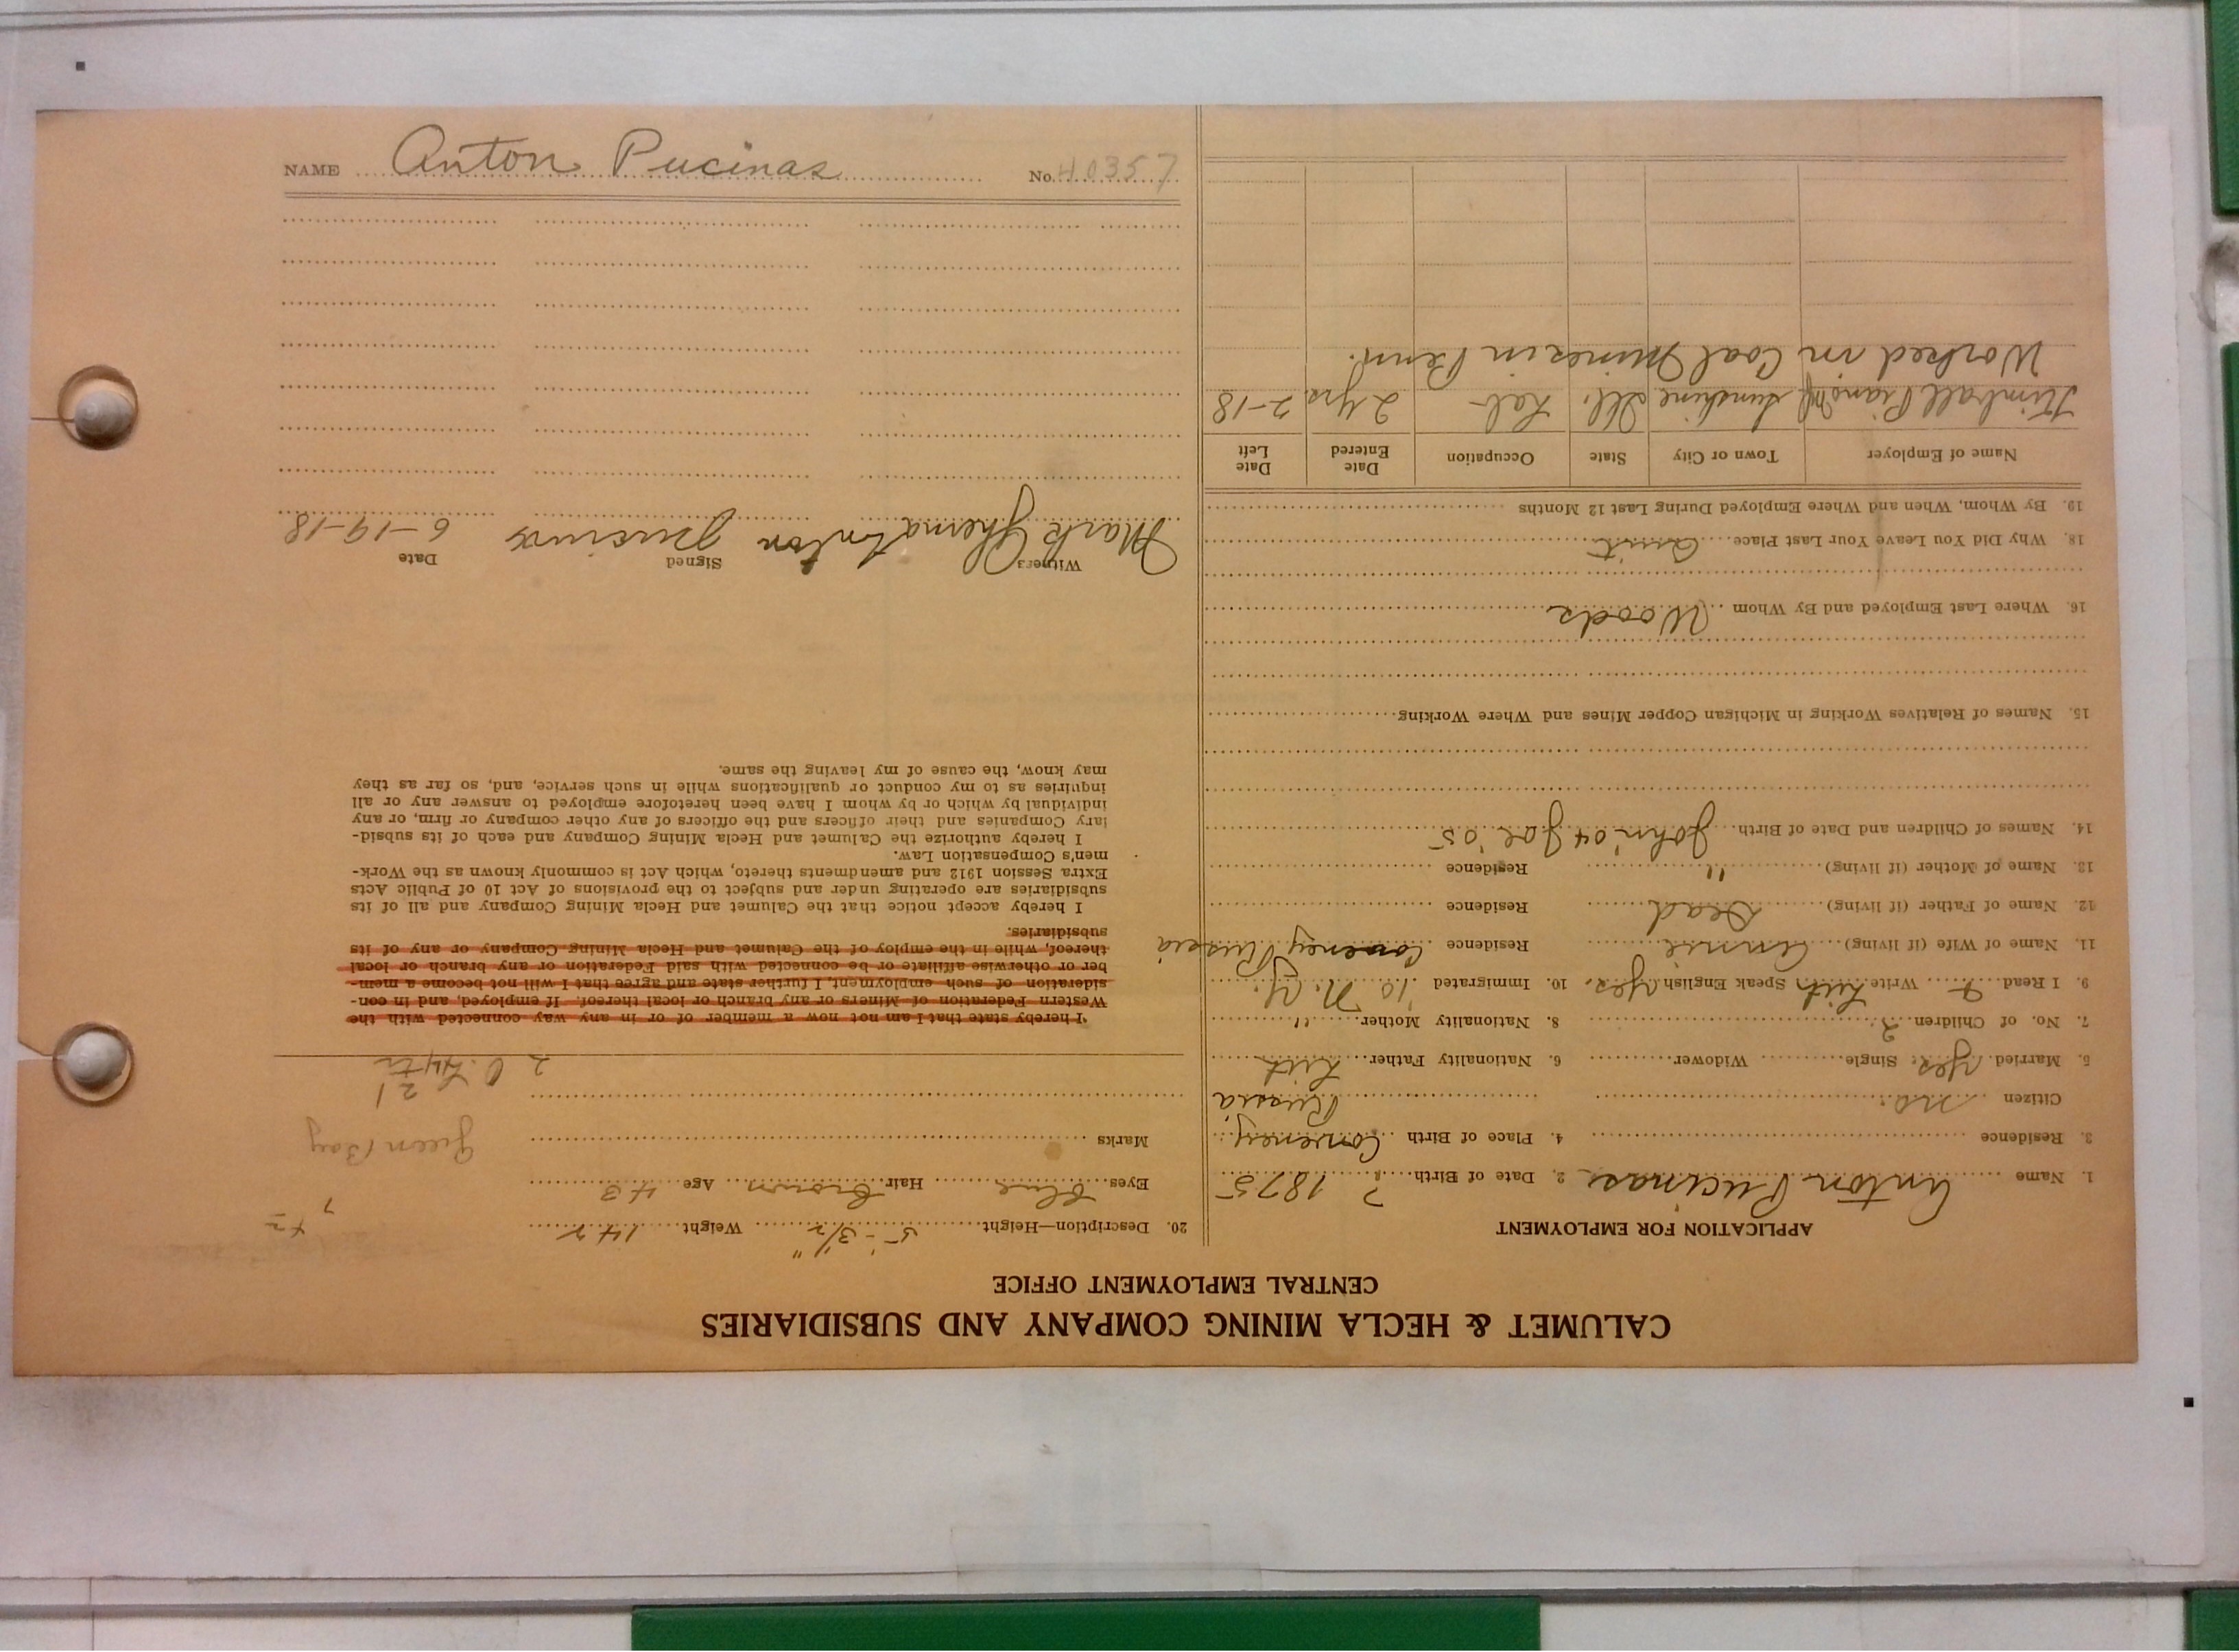 NAME Anton Pucinas No. 40357
CALUMET & HECLA MINING COMPANY AND SUBSIDIARIES
CENTRAL EMPLOYMENT OFFICE
APPLICATION FOR EMPLOYMENT
1. Name Anton Pucinas 2. Date of Birth ? 1875
3. Residence 4. Place of Birth Coveney
Citizen no. Russia
5. Married yes. Single Widower 6. Nationality Father Lith
7. No. of Children 2. 8. Nationality Mother "
9. I Read & Write Lith Speak English yes. 10. Immigrated '10 N.Y.
11. Name of Wife (if living) Annie Residence Coveney Russia
12. Name of Father (if living) Dead Residence
13. Name of Mother (if living) " Residence
14. Names of Children and Date of Birth John '04 Joe '05
15. Names of Relatives Working in Michigan Copper Mines and Where Working
16. Where Last Employed and By Whom Woods
18. Why Did You Leave Your Last Place Quit
19. By Whom, When and Where Employed During Last 12 Months
Name of Employer Town or City State Occupation Date Entered Date Left
Kimball Piano Mfg Sunshine Ill. Lab- 2 yrs. 2-18
Worked in Coal Mines in Penn.
20. Description—Height 5'-3½" Weight 142
Eyes blue Hair brown Age 43
Marks
Green Bay
I hereby state that I am not now a member of or in any way connected with the
Western Federation of Miners or any branch or local thereof. If employed, and in con-
sideration of such employment, I further state and agree that I will not become a mem-
ber or otherwise affiliate or be connected with said Federation or any branch or local
thereof, while in the employ of the Calumet and Hecla Mining Company or any of its
subsidiaries.
I hereby accept notice that the Calumet and Hecla Mining Company and all of its
subsidiaries are operating under and subject to the provisions of Act 10 of Public Acts
Extra Session 1912 and amendments thereto, which Act is commonly known as the Work-
men's Compensation Law.
I hereby authorize the Calumet and Hecla Mining Company and each of its subsid-
iary Companies and their officers and the officers of any other company or firm, or any
individual by which or by whom I have been heretofore employed to answer any or all
inquiries as to my conduct or qualifications while in such service, and, so far as they
may know, the cause of my leaving the same.
Witness Signed Date
Mark Anton Pucinas 6-19-18